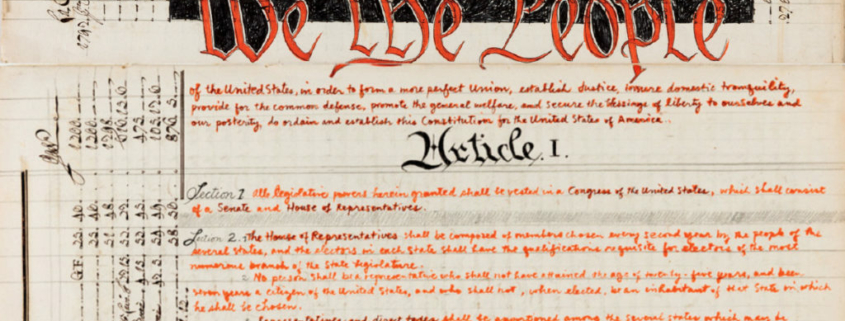 We the People
of the United States, in order to form a more perfect Union, establish Justice, insure domestic tranquility,
provide for the common defense, promote the general welfare, and secure the blessings of liberty to ourselves and
our posterity, do ordain and establish this Constitution for the United States of America.
Article. I.
Section 1 All legislative powers herein granted shall be vested in a Congress of the United States, which shall consist
of a Senate and House of Representatives.
Section 2. The House of Representatives shall be composed of members chosen every second year by the people of the
several States, and the electors in each State shall have the qualifications requisite for electors of the most
numerous branch of the State legislature.
2 No person shall be a representative who shall not have attained the age of twenty-five years, and been
seven years a citizen of the United States, and who shall not, when elected, be an inhabitant of that State in which
he shall be chosen.
Representatives and direct taxes shall be apportioned among the several states which may be